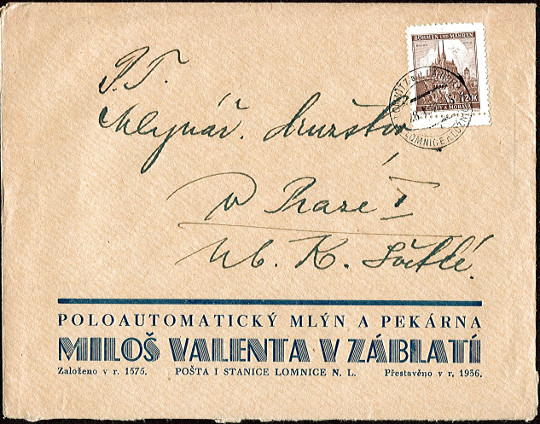 BÖHMEN UND MÄHREN
LOMNICE n. LUŽN.
P.T.
Mlynář. družstvo
v Praze I
ul. K. Světlé.
POLOAUTOMATICKÝ MLÝN A PEKÁRNA
MILOŠ VALENTA V ZÁBLATÍ
Založeno v r. 1575. POŠTA I STANICE LOMNICE N. L. Přestavěno v r. 1936.